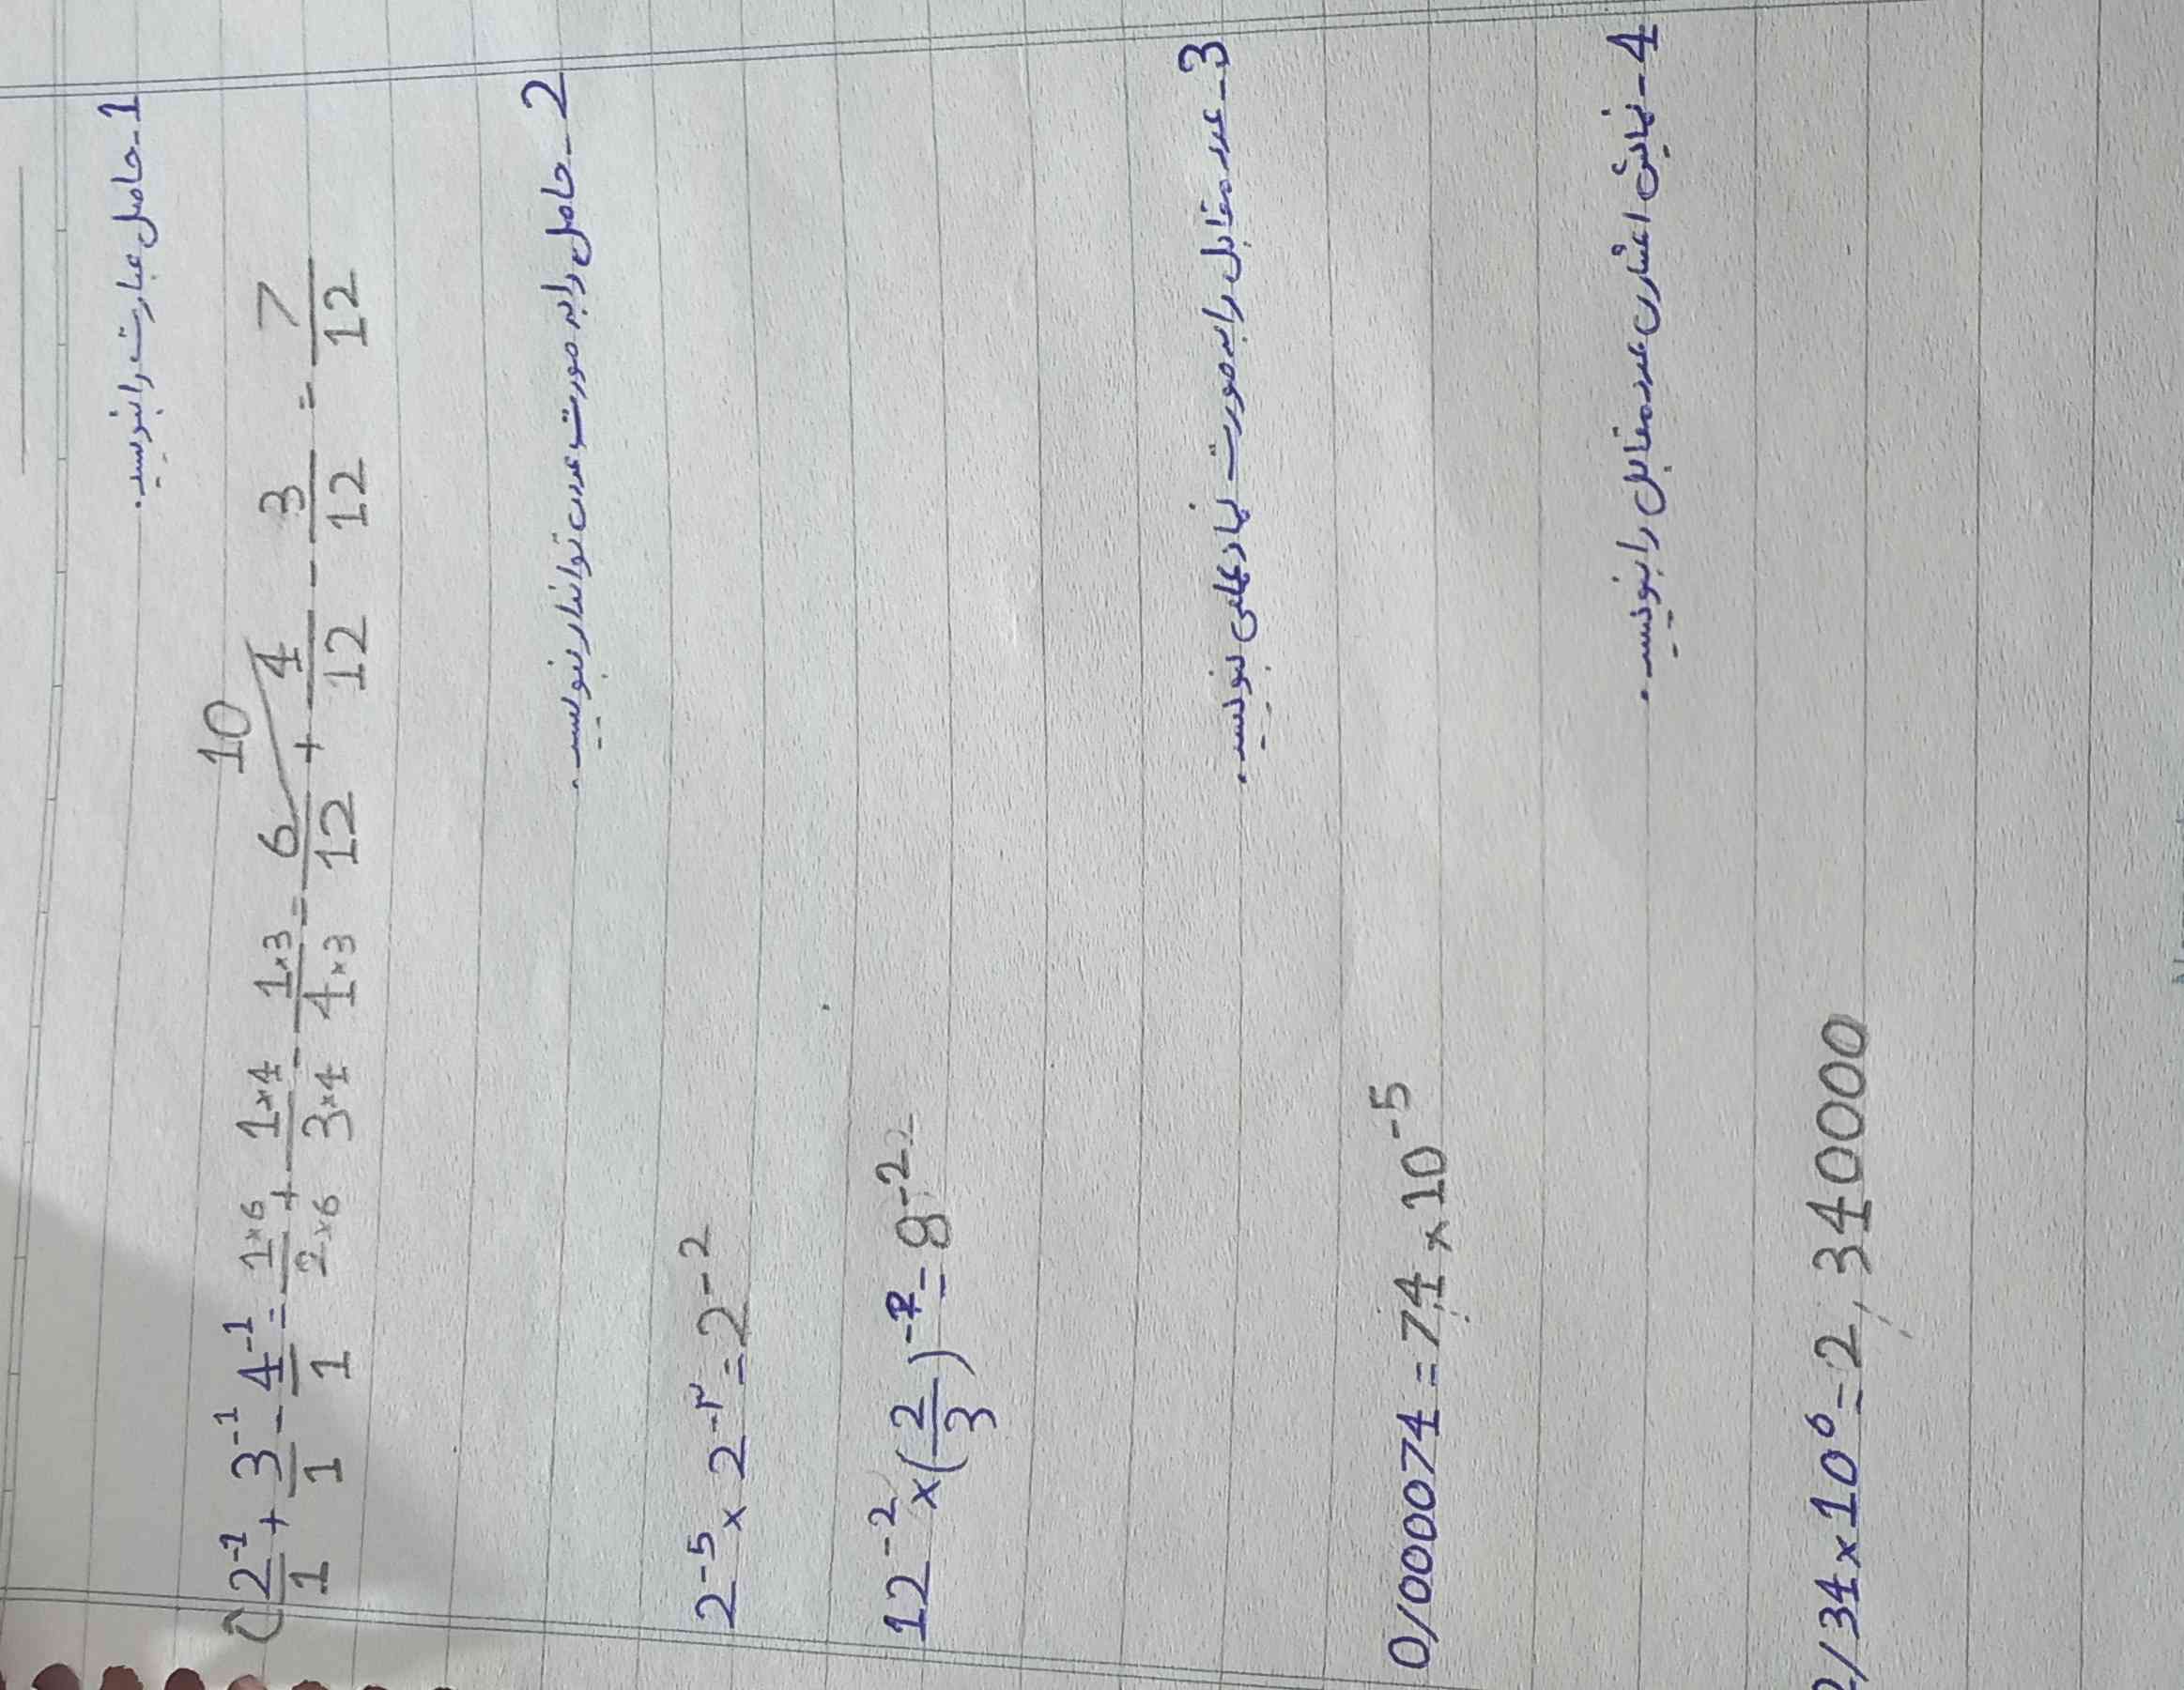 1- حاصل عبارت را بنویسید.
2⁻¹/1 + 3⁻¹/1 - 4⁻¹/1 = 1×6/2×6 + 1×4/3×4 - 1×3/4×3 = 6/12 + 4/12 - 3/12 = 7/12
10
2- حاصل را به صورت عددی توان‌دار بنویسید.
2⁻⁵ × 2⁻³ = 2⁻²
12⁻² × (2/3)⁻² = 8⁻²
3- عدد مقابل را به صورت نماد علمی بنویسید.
0/000074 = 7,4 × 10⁻⁵
4- نمایش اعشاری عدد مقابل را بنویسید.
2/34×10⁶ = 2,340000